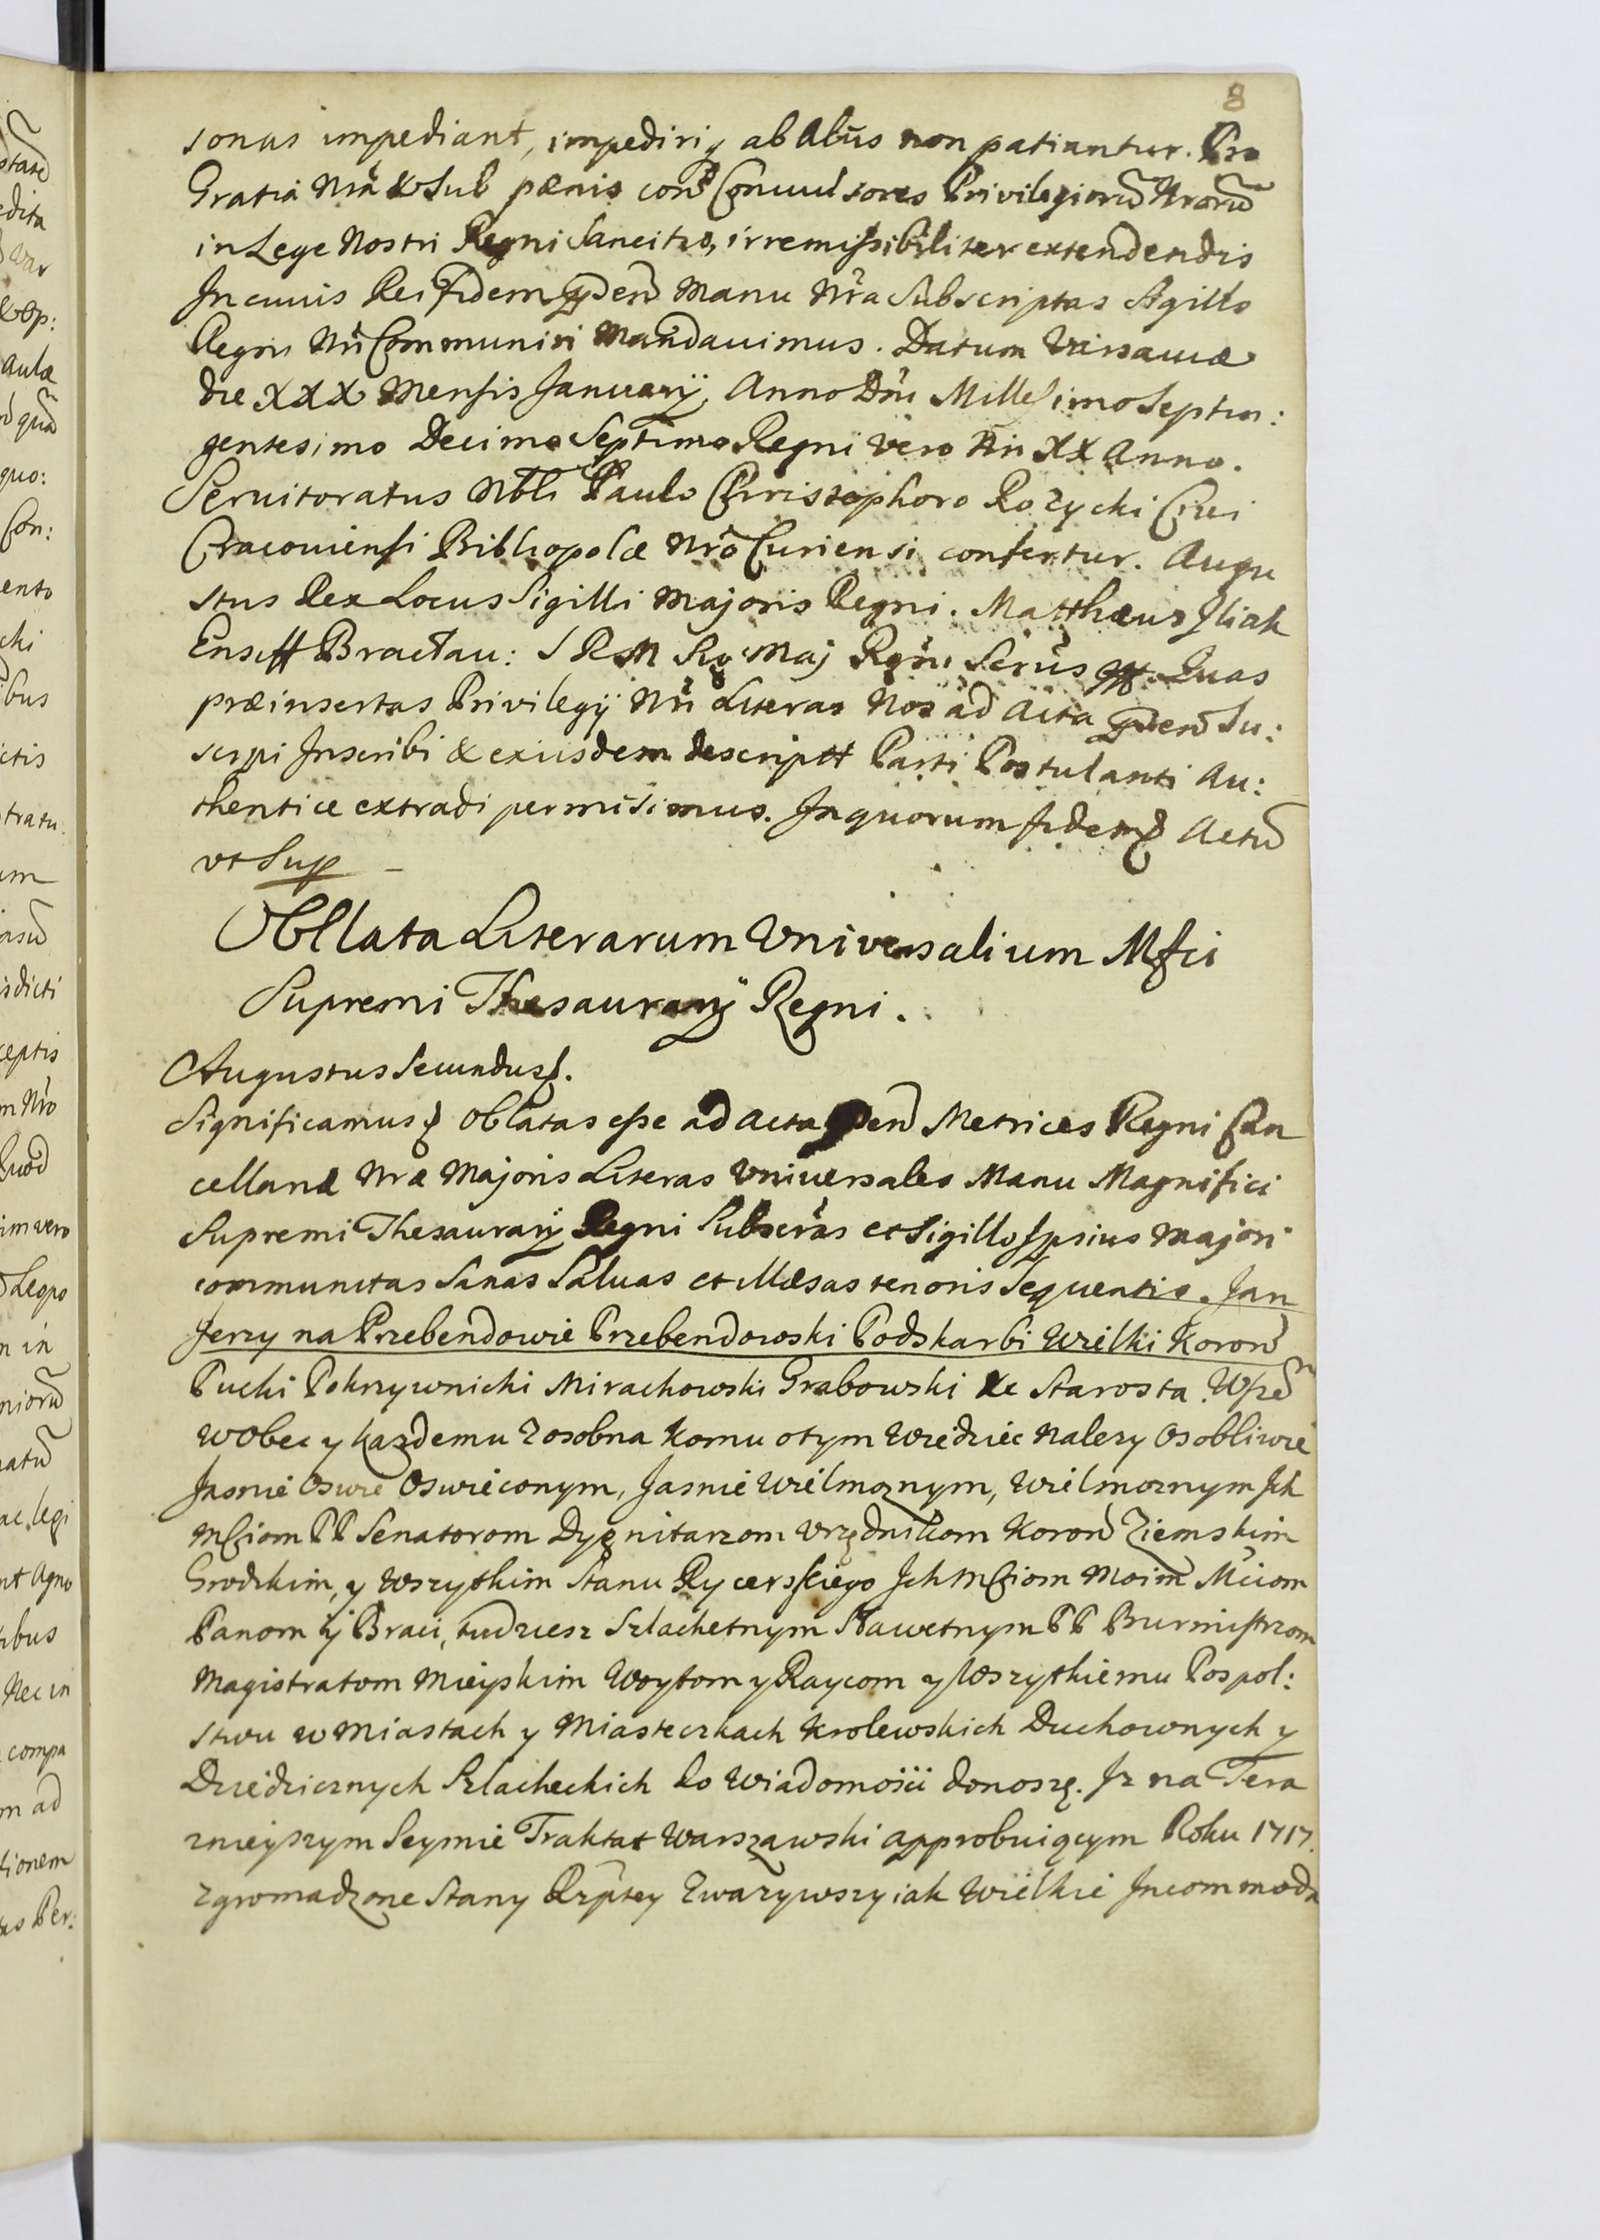 8
sonas impediant, impediriq ab Alijs non patiantur. Pro
Gratia Nrã & Sub pænis conō Convulsores Privilegiorū Nrorū
in Lege Nostri Regni Sancitis, irremissibiliter extendendis
In cuius Rei fidem pñden Manu Nrã Subscriptas Sigillo
Regni Nri Communiri Mandavimus. Datum Varsaviæ
die XXX Mensis Januarij, Anno Dñi Millesimo Septin:
gentesimo Decimo Septimo Regni Vero Nri XX Anno.
Servitoratus Nbli Paulo Christophoro Rozycki Civi
Cracoviensi Bibliopolæ Nrõ Curiensi confertur. Augu
stus Rex Locus Sigilli Majoris Regni. Matthæus Iliak
Ensiff Bractav: S R M Maj Regni Secrius Quas
præinsertas Privilegij Nri Literas Nos ad Acta pñden Su:
scipi Inscribi & exiisdem descriptt Parti Postulanti Au:
thentice extradi permisimus. In quorum fidem Actū
vt Sup —
Obllata Literarum Vniversalium Mfici
Supremi Thesaurarij Regni.
Augustus Secundus.
Significamus Oblatas esse ad Acta pñden Metrices Regni Can
cellariæ Nræ Majoris Literas Vniversales Manu Magnifici
Supremi Thesaurarij Regni Subscrãs et Sigillo Ipsius Majori
communitas Sanas Salvas et illæsas tenoris Sequentis. Jan
Jerzy na Przebendowie Przebendowski Podskarbi Wielki Koron
Pucki Pokrzywnicki Mirachowski Grabowski &c Starosta. Wszē
wobec y każdemu Zosobna komu otym Wiedziec Nalezy Osobliwie
Jasnie Oswie Oswieconym, Jasnie Wielmoznym, Wielmoznym Ich
Mciom PP Senatorom Dygnitarzom Vrzędnikom Koron Ziemskim
Grodzkim, y Wszytkim Stanu Rycerskiego Ich Mciom Moim Mciom
Panom y Braci, tudziesz Szlachetnym Sławetnym PP Burmistrzom
Magistratom Mieyskim Woytom y Raycom y Wszytkiemu Pospol:
stwu w Miastach y Miasteczkach Krolewskich Duchownych y
Dziedzicznych Szlacheckich do Wiadomości donoszę. Iz na Tera
znieyszym Seymie Traktat Warszawski approbuiącym Roku 1717
zgromadzone Stany Rzptey Zwazywszy iak Wielkie Incommoda